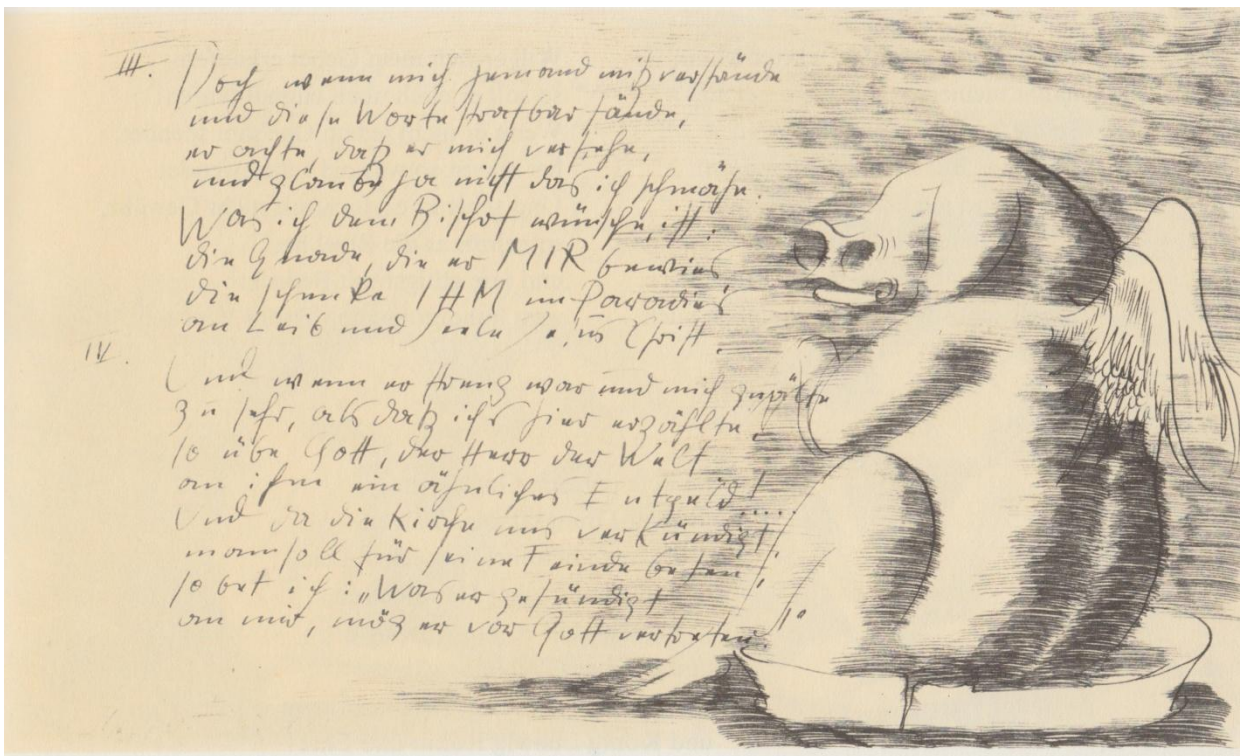 III. Doch wenn mich jemand mißverstände
und diese Worte strafbar fände,
er achte, daß er mich verstehe,
und glaube ja nicht das ich schmähe.
Was ich dem Bischof wünsche, ist:
die Gnade, die er MIR bewies
die schenke IHM im Paradies
an Leib und Seele Jesus Christ.
IV. Und wenn er streng war und mich quälte
zu sehr, als daß ich's hier erzählte,
so übe Gott, der Herr der Welt
an ihm ein ähnliches Entgeld!....
Und da die Kirche uns verkündigt,
man soll für seine Feinde beten,
so bet ich: „Was er gesündigt
an mir, mög er vor Gott vertreten."